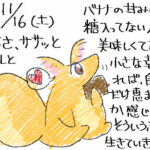 1/16(土)
さ、ササッと
しと
バナナの甘み
糖入ってない
美味しくて
小さな
れば、自
だけ恵ま
か感じ
そういう
生きていき